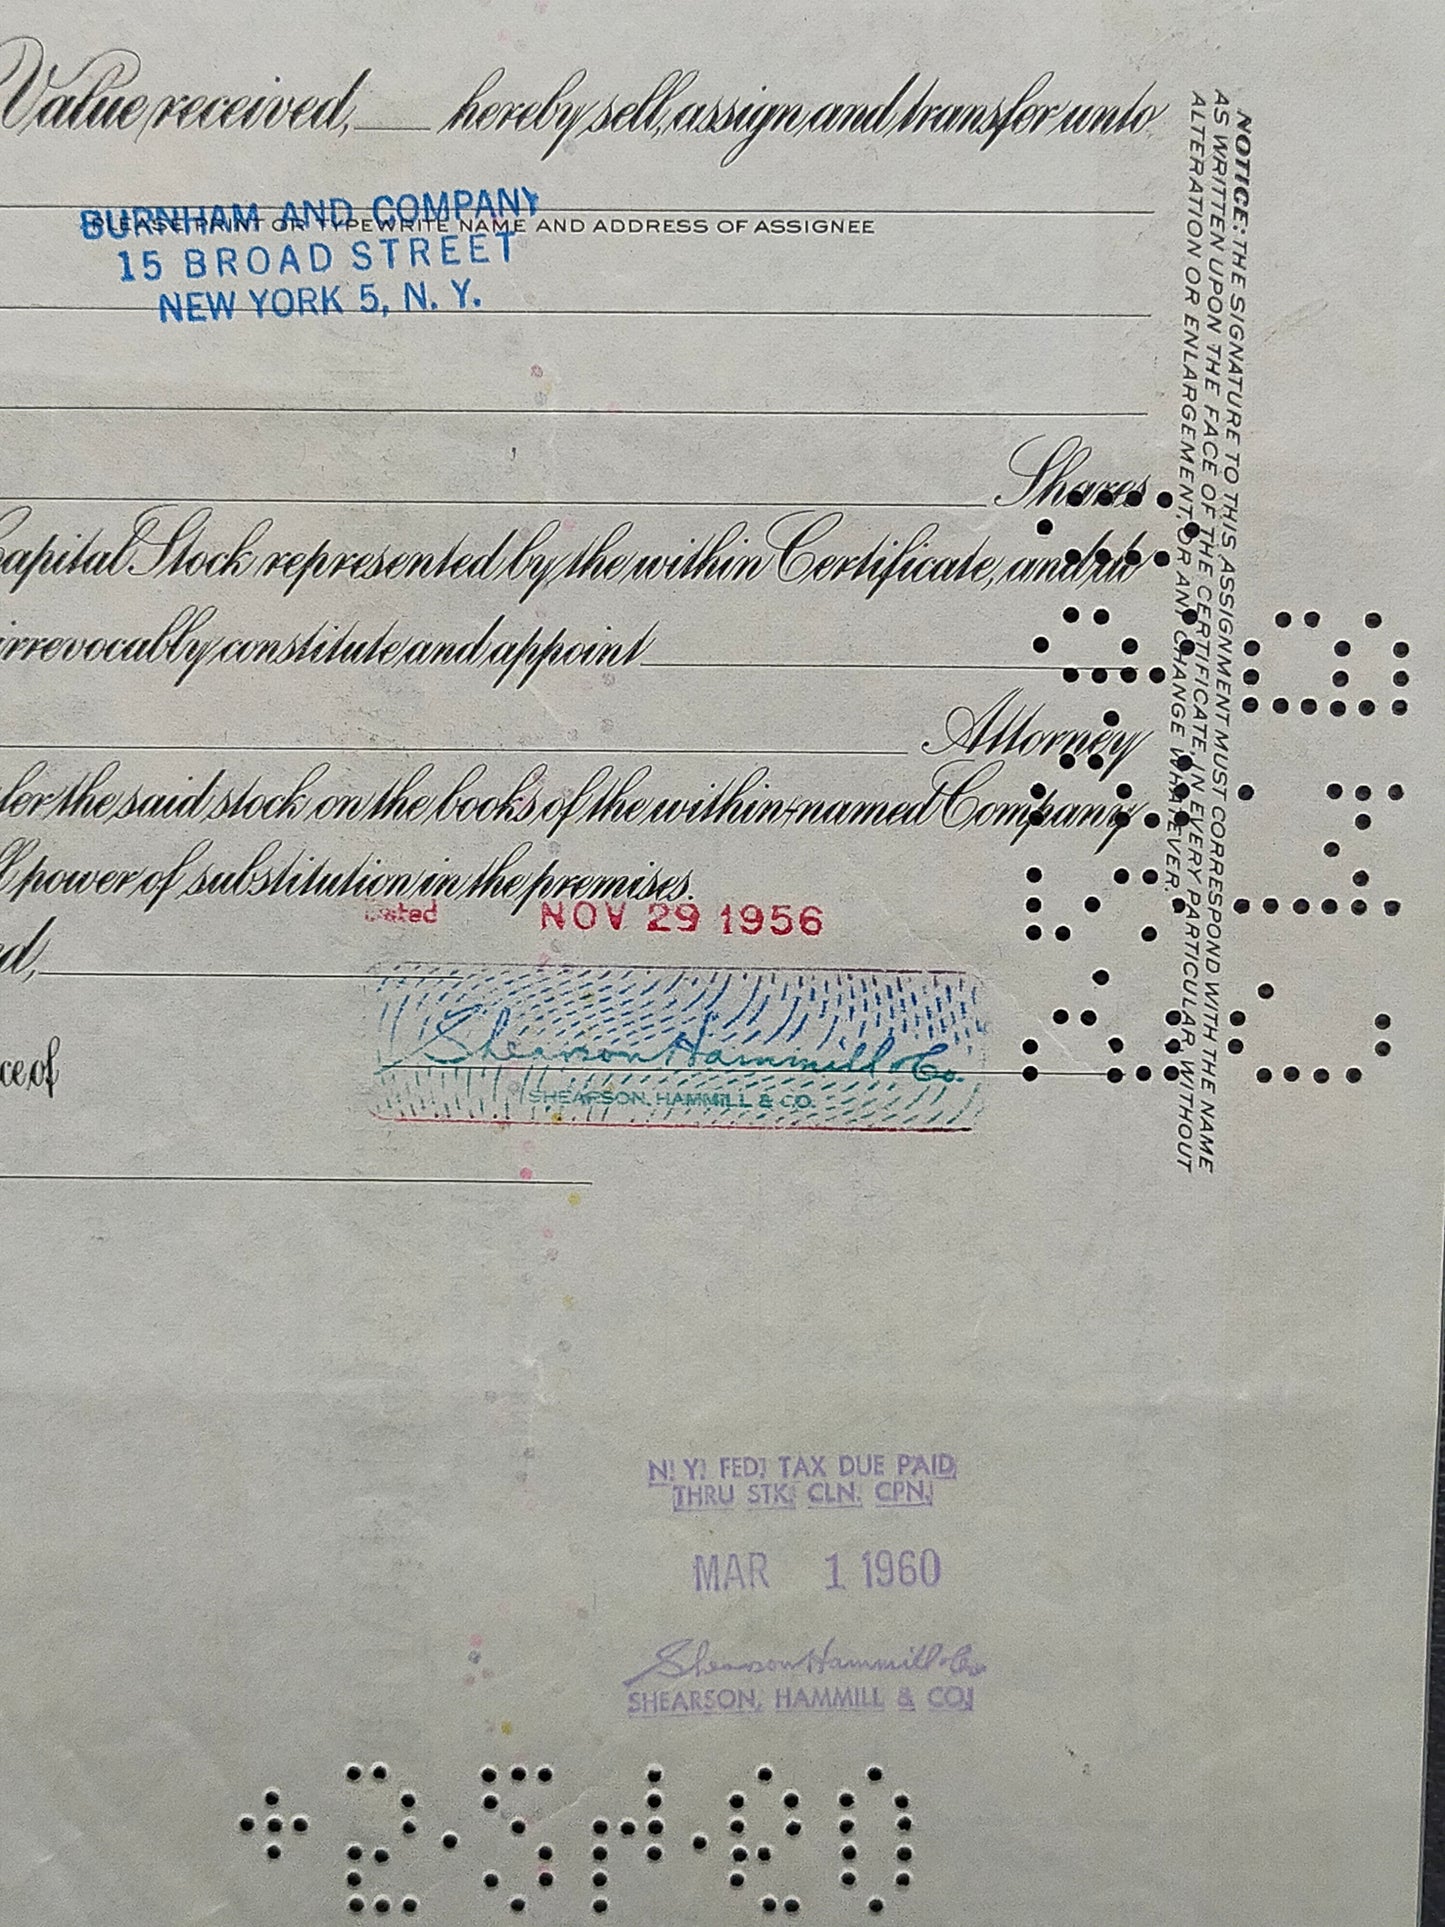 Value received, hereby sell, assign and transfer unto
BURNHAM AND COMPANY
PLEASE PRINT OR TYPEWRITE NAME AND ADDRESS OF ASSIGNEE
15 BROAD STREET
NEW YORK 5, N. Y.
Shares
Capital Stock represented by the within Certificate, and do
irrevocably constitute and appoint
Attorney
the said stock on the books of the within-named Company
power of substitution in the premises.
Dated NOV 29 1956
Shearson Hammill & Co.
SHEARSON, HAMMILL & CO.
NOTICE: THE SIGNATURE TO THIS ASSIGNMENT MUST CORRESPOND WITH THE NAME
AS WRITTEN UPON THE FACE OF THE CERTIFICATE, IN EVERY PARTICULAR, WITHOUT
ALTERATION OR ENLARGEMENT, OR ANY CHANGE WHATEVER.
N. Y. FED. TAX DUE PAID
THRU STK. CLN. CPN.
MAR 1 1960
Shearson Hammill & Co.
SHEARSON, HAMMILL & CO.